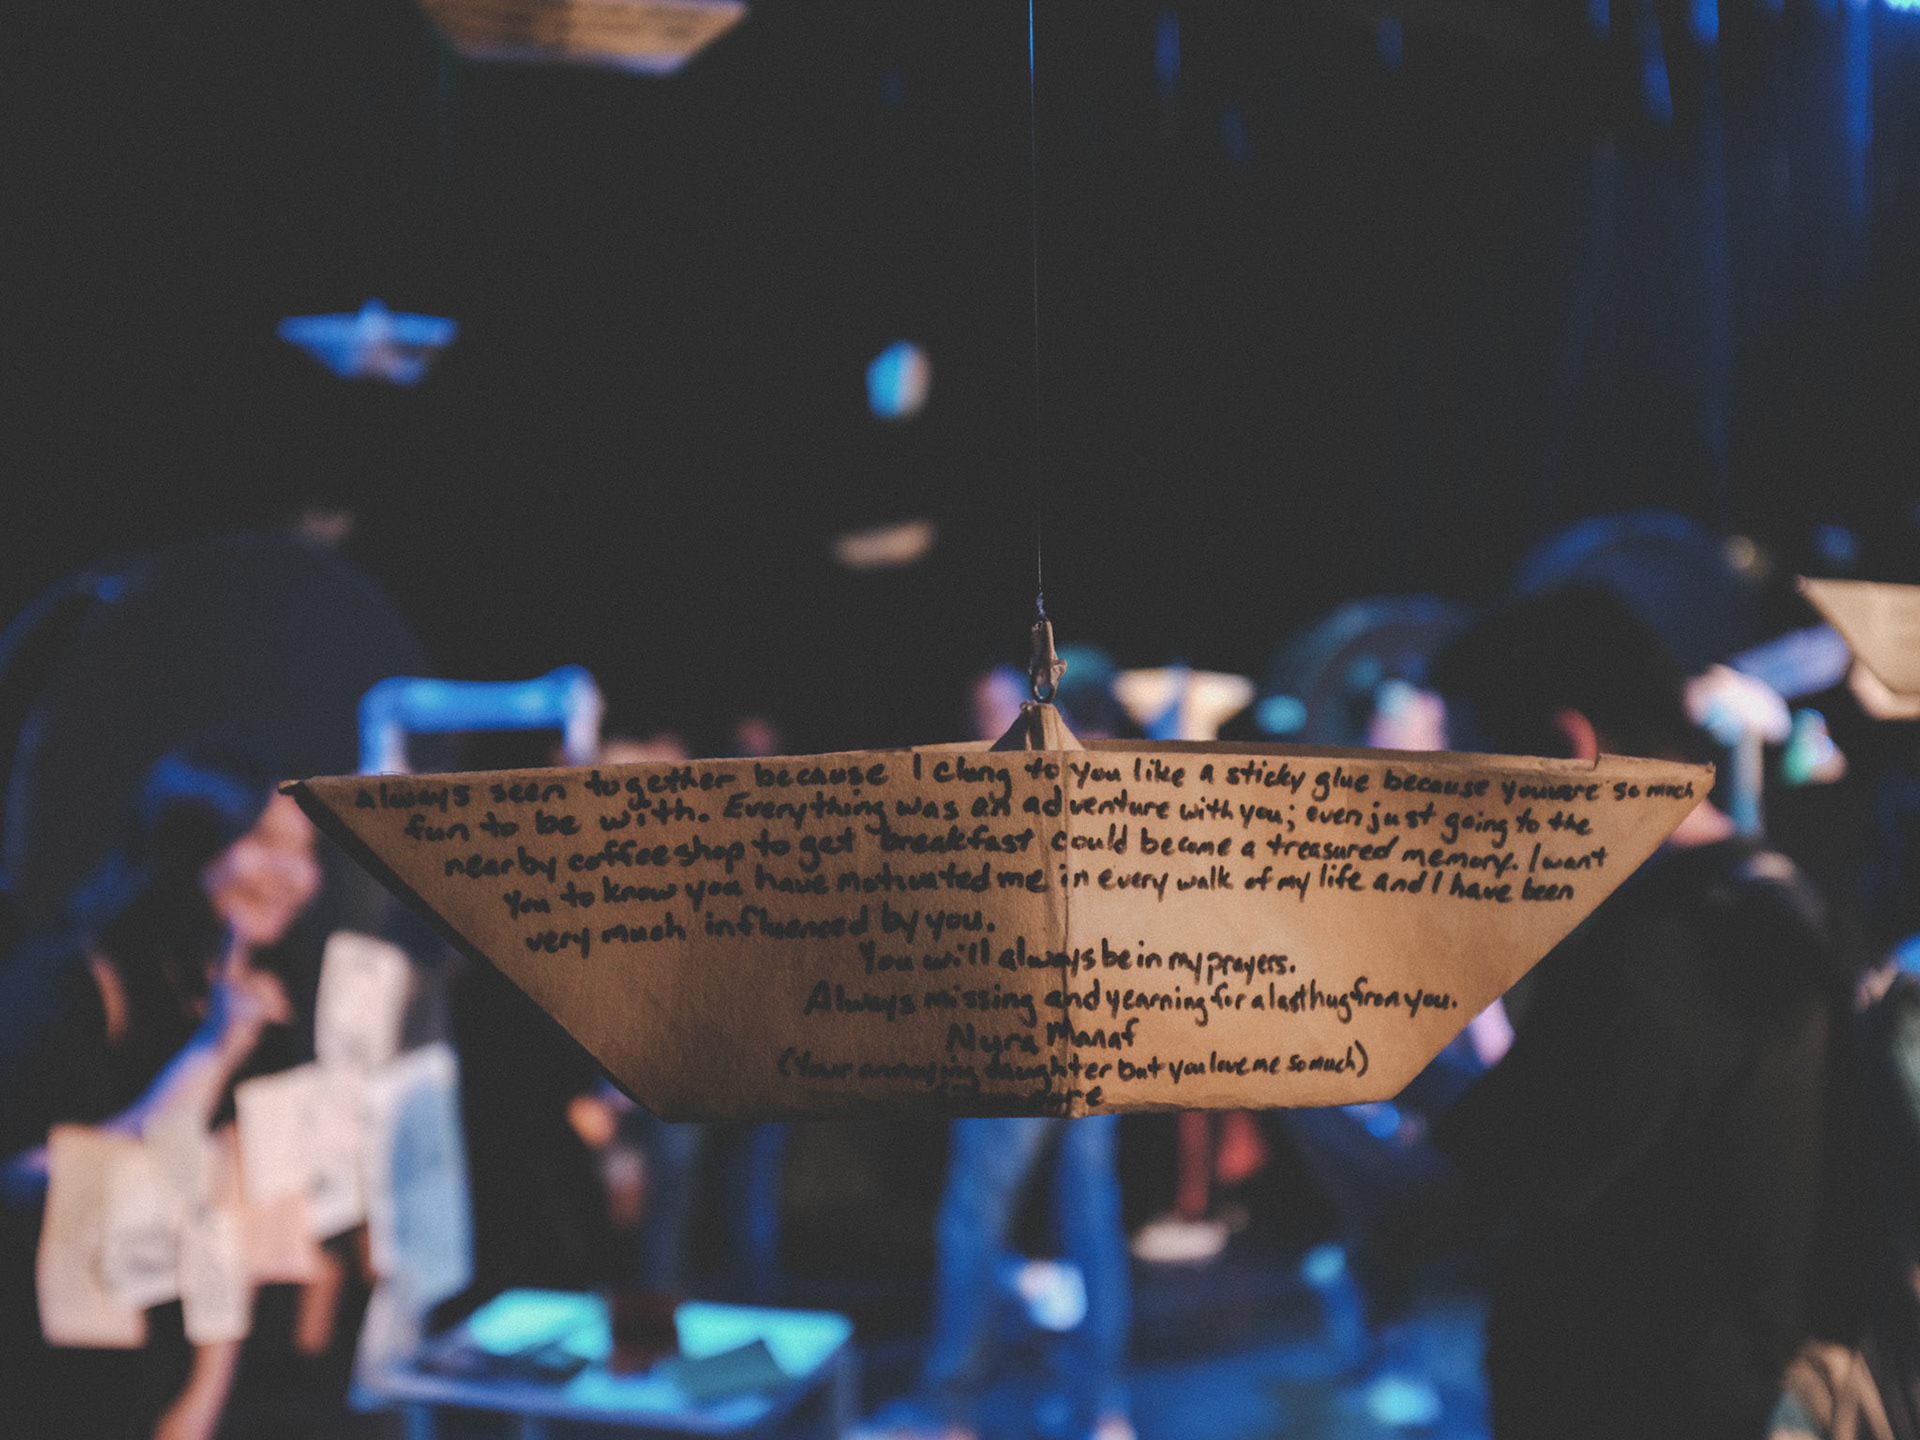 always seen together because I clung to you like a sticky glue because you are so much
fun to be with. Everything was an adventure with you; even just going to the
nearby coffeeshop to get breakfast could become a treasured memory. I want
you to know you have motivated me in every walk of my life and I have been
very much influenced by you.
You will always be in my prayers.
Always missing and yearning for a last hug from you.
Nyra Manaf
(Your annoying daughter but you love me so much)